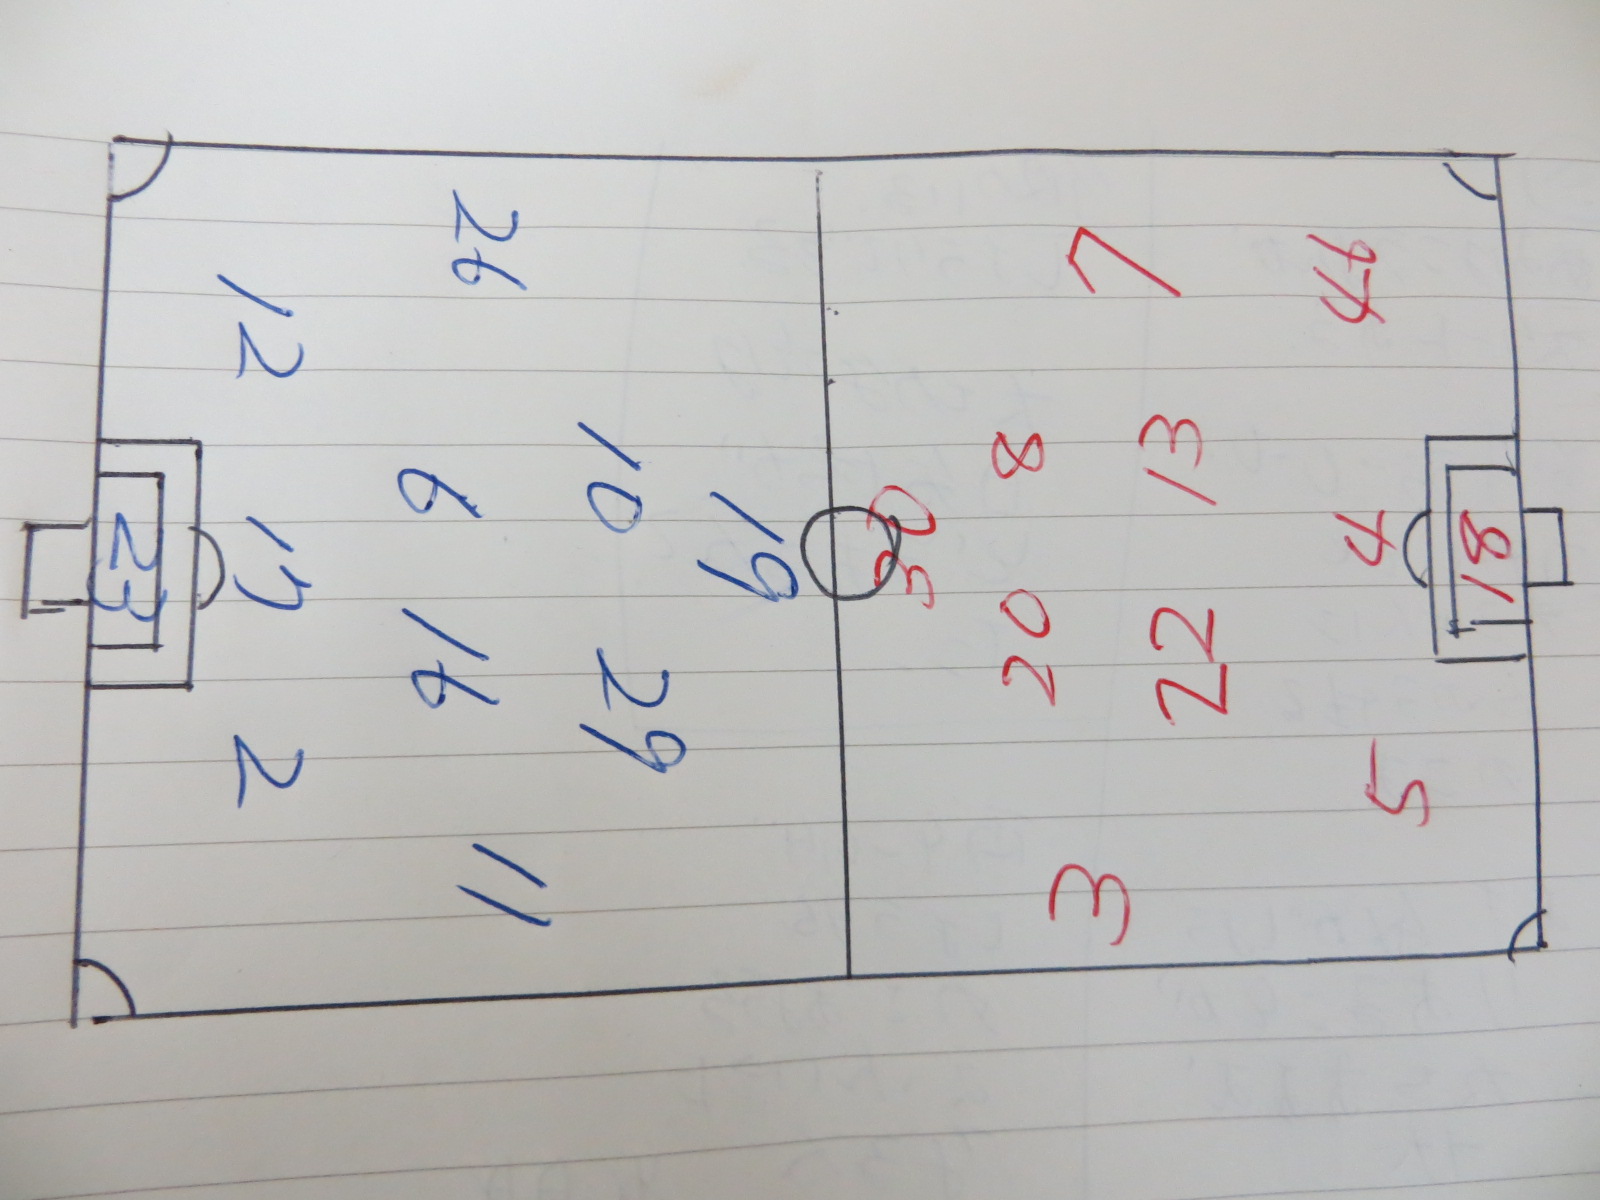 23
12
17
2
26
6
16
11
10
29
19
30
8
20
7
13
22
3
44
4
5
18